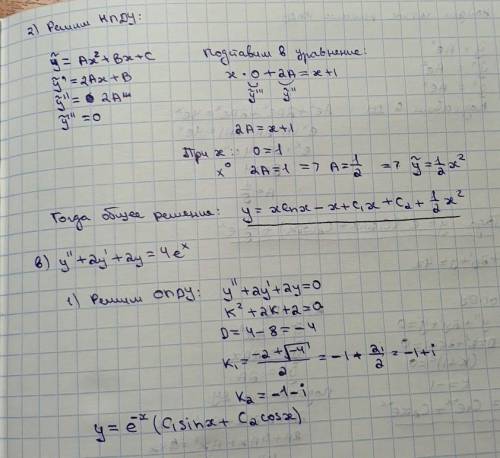 2) Решим НПДУ:
ỹ = Ax² + Bx + C
ỹ' = 2Ax + B
ỹ'' = 2A
ỹ''' = 0
Подставим в уравнение:
x · 0 + 2A = x + 1
ỹ''' ỹ''
2A = x + 1
При x: 0 = 1
x⁰ 2A = 1 => A = 1/2 => ỹ = 1/2 x²
Тогда общее решение: y = x ln x - x + C₁x + C₂ + 1/2 x²
в) y'' + 2y' + 2y = 4e^x
1) Решим ОПДУ: y'' + 2y' + 2y = 0
K² + 2K + 2 = 0
D = 4 - 8 = -4
K₁ = (-2 + √-4)/2 = -1 + 2i/2 = -1 + i
K₂ = -1 - i
y = e^-x (C₁ sin x + C₂ cos x)